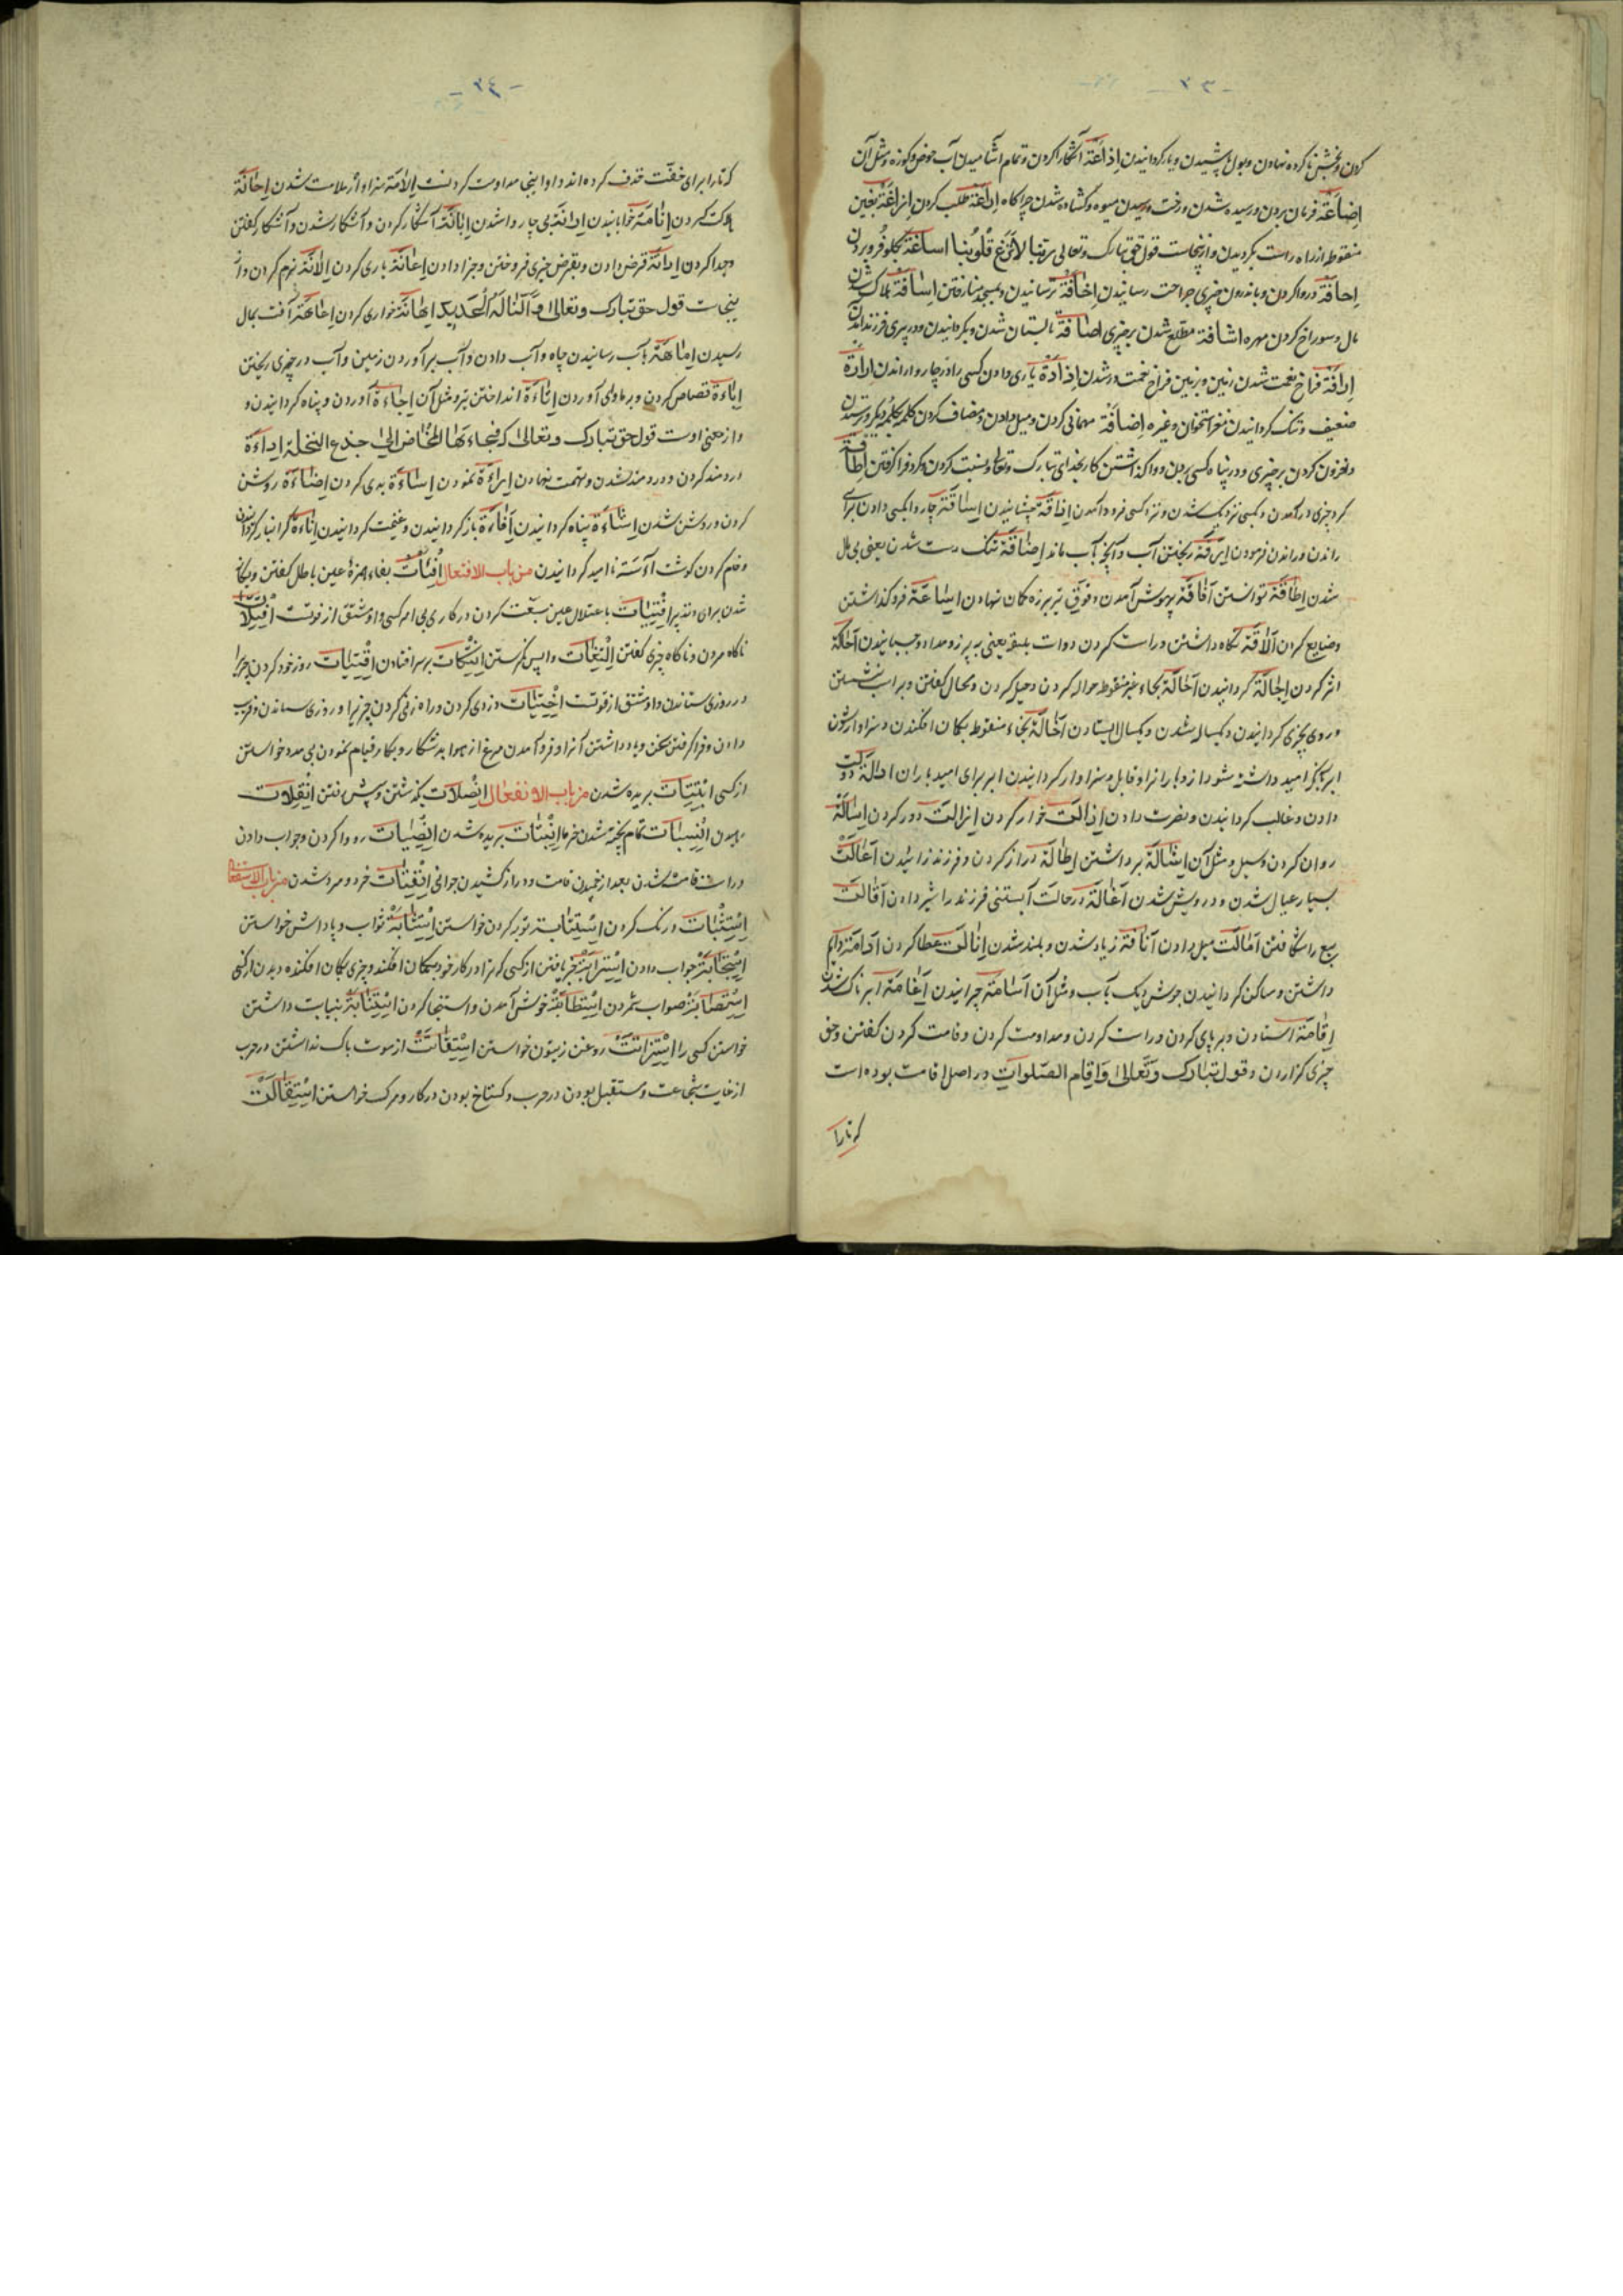 - ٢٣ -
کردن و بخشش ناکرده نهادن و بول پاشیدن و یار کردانیدن اِذاعَة آشکارا کردن و تمام آشامیدن آب حوض و کوزه و مثل آن
اِضاعَة فرمان بردن و رسیده شدن درخت و رسیدن میوه و کشاده شدن چراکاه اِراغَة طلب کردن اِزاغَة بغین
منقوطه از راه راست بکردیدن و ازینجاست قول حق تبارک و تعالی ربّنا لاتُزغ قُلُوبَنا اساغَة بکلو فرو بردن
اِجافَة در واکردن و باندرون چیزی جراحت رسانیدن اِخافَة ترسانیدن و بمسجد منا رفتن اِسافَة هلاک شدن
مال و سوراخ کردن مهره اشافة مطّلع شدن بر چیزی اِصافَة بتابستان شدن و بکردانیدن و در پیری فرزند آمدن
فراخ نعمت شدن زمین و زمین فراخ نعمت و رشدن اِذادَة یاری دادن کسی را در چاروا راندن اِرادَة
ضعیف و تنک کردانیدن مغز استخوان و غیره اِضافَة مهمانی کردن و میل دادن و مضاف کردن کلمه بکلمه دیکر و ترسیدن
و افزون کردن بر چیزی و در پناه کسی بردن و واکذاشتن کار بخدای تبارک و تعالی و نسبت کردن و کرد فرا کرفتن اِطافَة
کرد چیزی در آمدن و بکسی نزدیک شدن و نزد کسی فرود آمدن اِذاقَة چشانیدن اِساقَة چاروا بکسی دادن برای
راندن و راندن فرمودن اِراقَة ریختن آب و آنچه بآب ماند اِضاقَة تنک دست شدن یعنی بی مال
شدن اِطاقَة توانستن اَفاقَة بهوش آمدن و فوق تیر بر زه کمان نهادن اِساعَة فرو کذاشتن
و ضایع کردن اَلاقَة نکاه داشتن و راست کردن دوات بلیقه یعنی به پرز و مداد و چسبانیدن اَحاکَة
اثر کردن اِجالَة کردانیدن اَحالَة بحاء غیر منقوطه حواله کردن و حیل کردن و محال کفتن و بر اسب نشستن
و روی بچیزی کردانیدن و یکسال شدن و یکسال ایستادن اَخالَة بخاء منقوطه بکمان افکندن و سزاوار شدن
ابر که بکژ امید داشته شود از وباران را و قابل و سزاوار کردانیدن ابر برای امید باران ادالَة دولت
دادن و غالب کردانیدن و نصرت دادن اِذالَت خوار کردن اِزالَت دور کردن اِسالَة
روان کردن و سیل و مثل آن اِشالَة برداشتن اِطالَة دراز کردن و فرزند زائیدن اَعالَت
بسیار عیال شدن و درویش شدن اَغالَة در حالت آبستنی فرزند را شیر دادن اَقالَت
بیع را شکافتن اَمالَت میل دادن اَنافَة زیاد شدن و بلند شدن اِنالَت عطا کردن اَدامَة دایم
داشتن و ساکن کردانیدن جوش دیک بآب و مثل آن اَسامَة چرانیدن اَغامَة ابرناک شدن
اِقامَة استادن و برپای کردن و راست کردن و مداومت کردن و قامت کردن کفتن و حق
چیزی کزاردن و قول تبارک وَتَعالی وَاِقام الصّلوات در اصل اقامت بوده است
که تا را
- ٢٤ -
که تا را برای خفّت حذف کرده اند و اواینجا مداومت کردنست اِلامَة سزاوار ملامت شدن اِحانَة
هلاک کردن اِنامَة خوابانیدن اِدانَة بی چاروا شدن اِبانَة آشکار کردن و آشکار شدن و آشکار کفتن
و جدا کردن اِدانَة قرض دادن و بقرض چیزی فروختن و جزا دادن اِعانَة یاری کردن اِلانَة نرم کردن و از
ینجاست قول حق تبارک و تعالی وَاَلَنّا لَهُ الْحَدِید اِهانَة خواری کردن اِعاهَة آفت بمال
رسیدن اِماهَة بآب رسانیدن چاه و آب دادن و آب برآوردن زمین و آب در چیزی ریختن
اِباءَة قصاص کردن و بر ماوی آوردن اِتاءَة انداختن تیر و مثل آن اِجاءَة آوردن و پناه کردانیدن و
و از معنی اوست قول حق تبارک و تعالی که فَجاءَهَا الْمَخَاض اِلیٰ جذع النخلة اِداءَة
دردمند کردن و دردمند شدن و تهمت نهادن اِراءَة نمودن اِساءَة بدی کردن اِضاءَة روشن
کردن و روشن شدن اِشاءَة پناه کردانیدن اَفاءَة باز کردانیدن و غنیمت کردانیدن اِناءَة کرانبار کردانیدن
و خام کردن کوشت آءسَة ناامید کردانیدن من باب الافتعال اُفْتِئات بفاء و همزهٔ عین باطل کفتن و یکانه
شدن برای و تدبیر اِفْتِیات باعتلال عین سبقت کردن در کاری بی امر کسی و او مشتق از فوتست اِفْتِلات
ناکاه مردن و ناکاه چیزی کفتن اِلْتِفات واپس نکرستن اِنْتِکات بر سر افتادن اِقْتِیات روز خود کردن چیزرا
و روزی ستاندن و او مشتق از قوتست اِخْتِیات دزدی کردن و راه زنی کردن چیزیرا و روزی ستاندن و فریب
دادن و فرا کرفتن سخن و یاد داشتن آنرا و فرو آمدن مرغ از هوا بر شکار و بکار قیام نمودن بی مدد خواستن
از کسی اِبْتِتات بریده شدن من باب الانفعال اِنْصِلات بکذشتن و پیش رفتن اِنْفِلات
رهیدن اِنْسِبات تمام پخته شدن خرما اِنْبِتات بریده شدن اِنْصِیات رو واکردن و جواب دادن
و راست قامت شدن بعد از خمیدن قامت و دراز کشیدن جوانی اِنْفِتات خرد و مرد شدن من باب الاستفعال
اِسْتِثْبات درنک کردن اِسْتِتابة توبه کردن خواستن اِسْتِثابَة ثواب و پاداش خواستن
اِسْتِجابَة جواب دادن اِسْتِرابَة چیز یافتن از کسی که مرا در کار خود بکمان افکند و چیزی بکمان افکنده دیدن از کسی
اِسْتِصابَة صواب شمردن اِسْتِطابَة خوش آمدن و استنجا کردن اِسْتِنابَة بنیابت داشتن
خواستن کسی را اِسْتِزاتَت روغن زیتون خواستن اِسْتِماتَت از موت باک نداشتن در حرب
از غایت شجاعت و مستقبل بودن در حرب و کستاخ بودن در کار و مرک خواستن اِسْتِقالَت